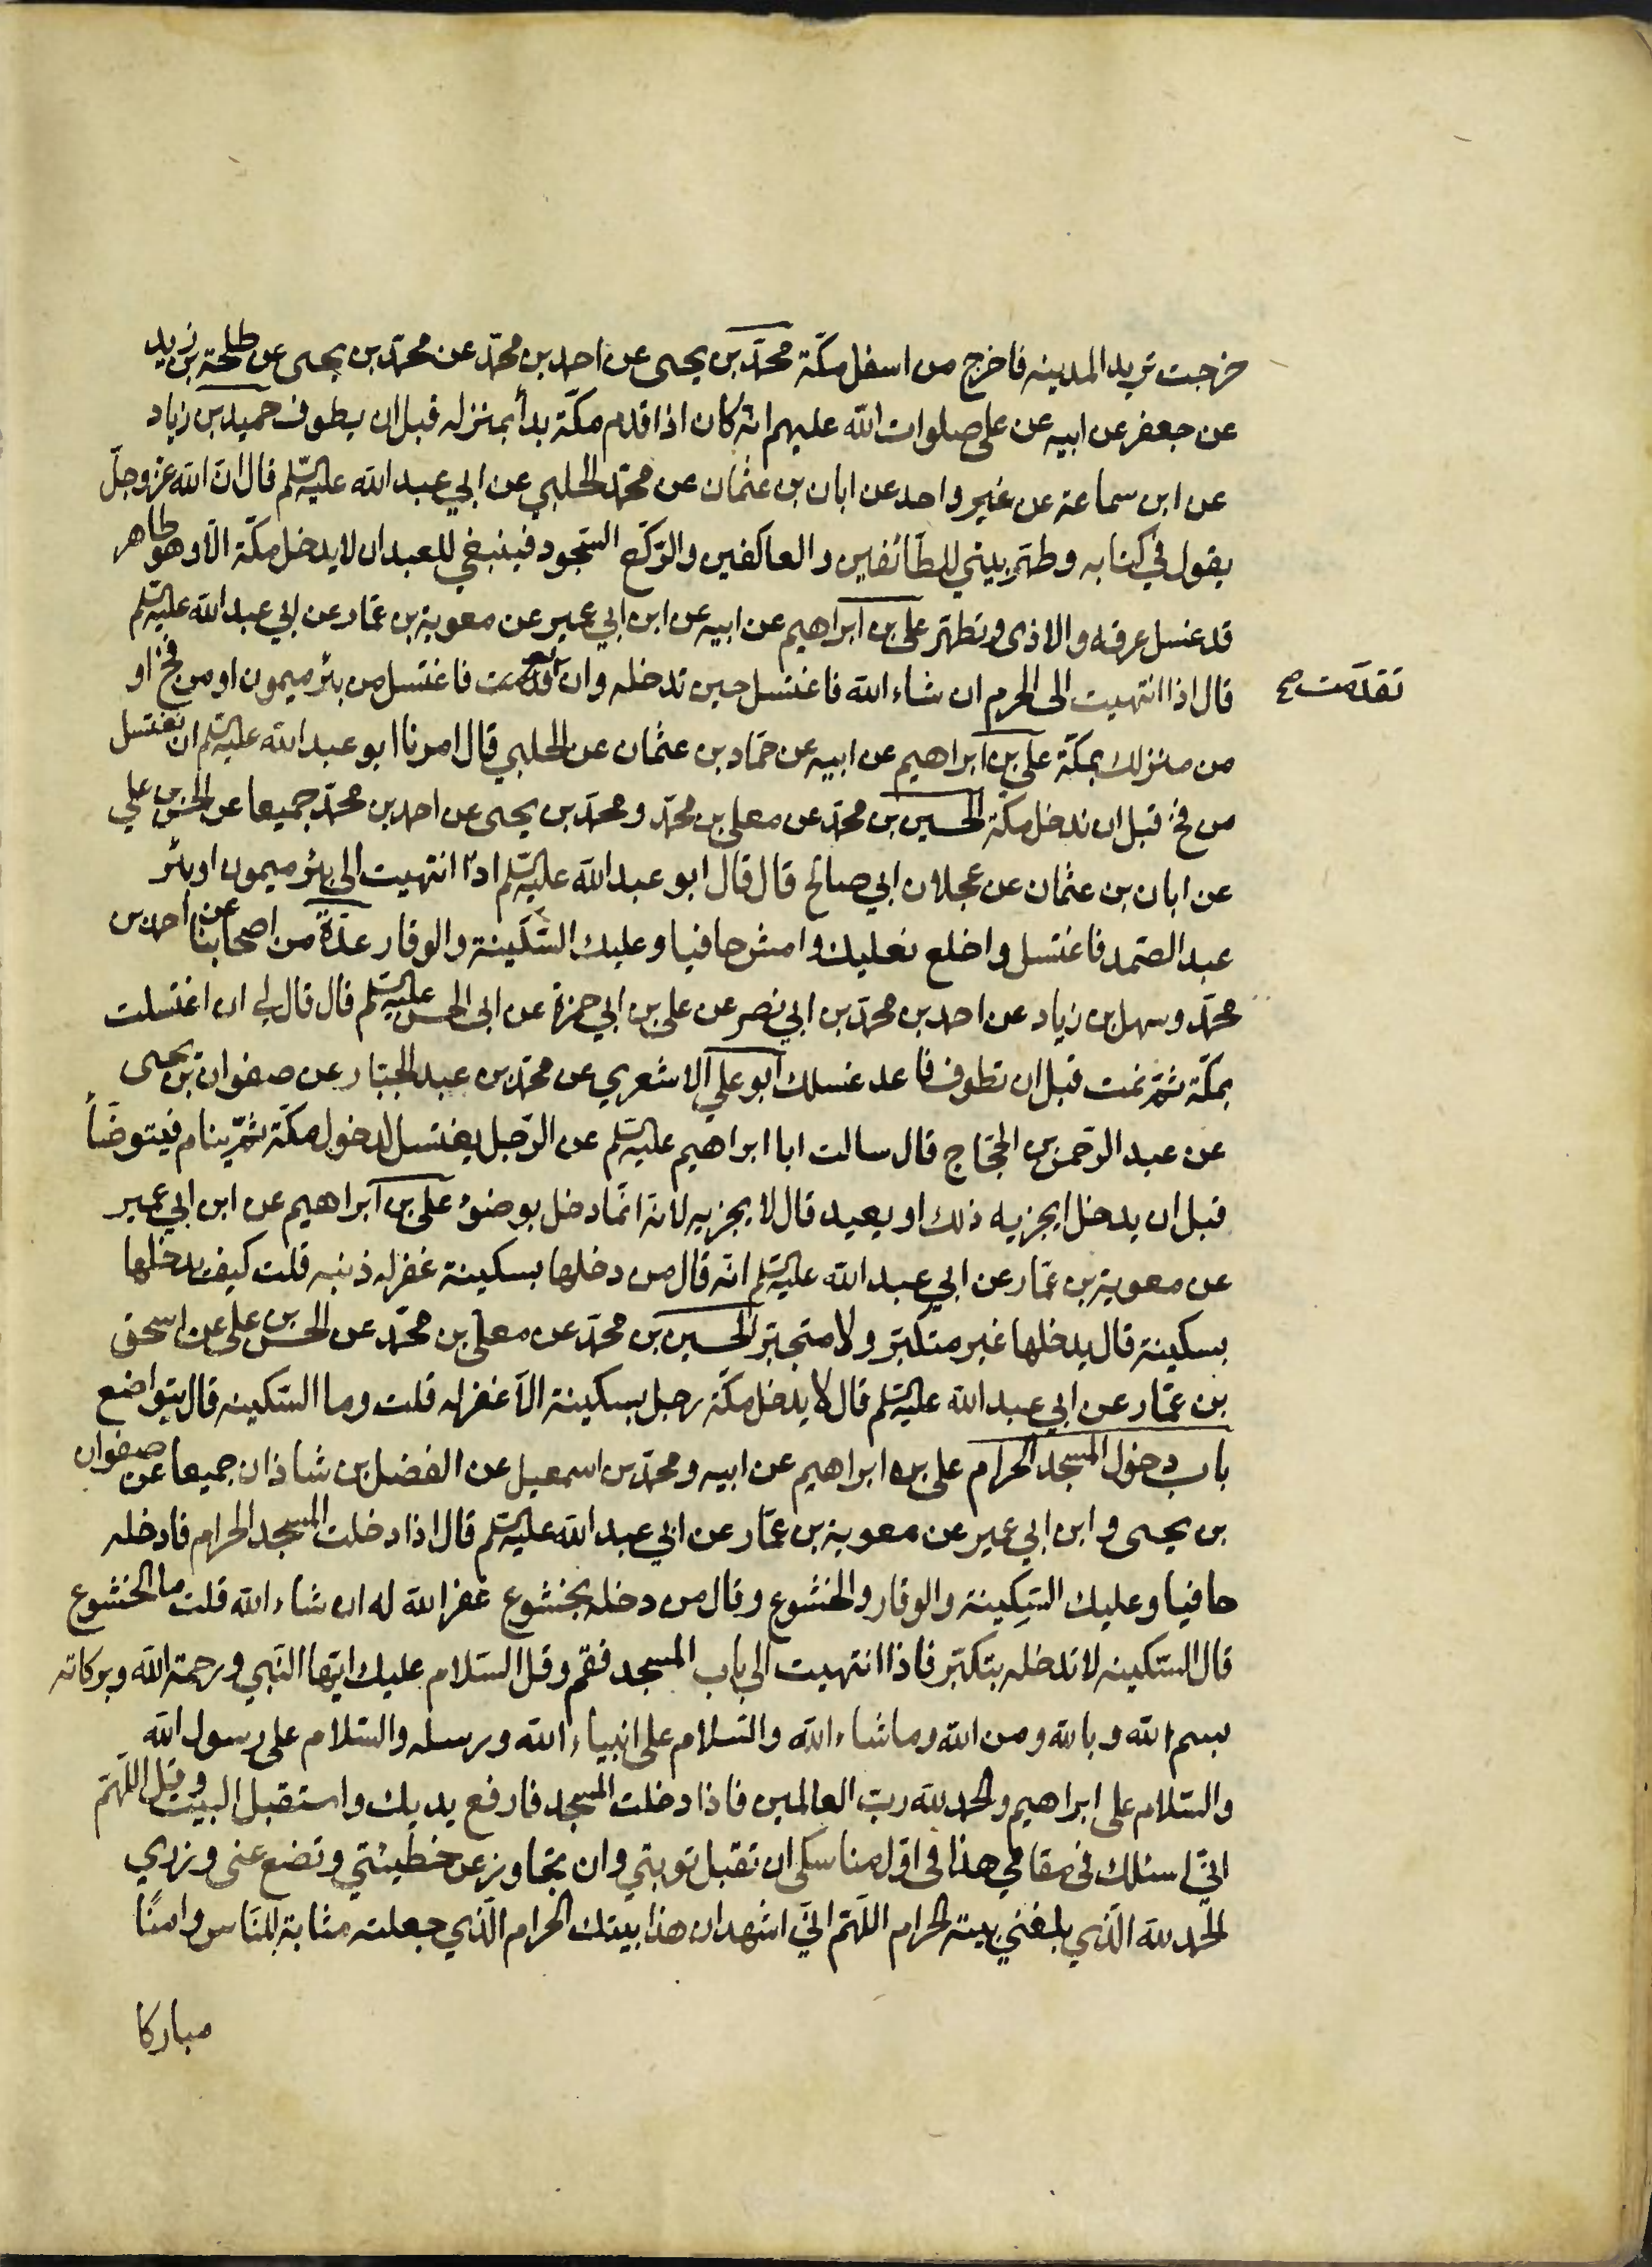 خرجت تريد المدينه فاخرج من اسفل مكّة محمّد بن يحيى عن احمد بن محمّد عن محمّد بن يحيى عن طلحة بن زيد
عن جعفر عن ابيه عن على صلوات الله عليهم انّه كان اذا قدم مكّة بدأ بمنزله قبل ان يطوف حميد بن زياد
عن ابن سماعة عن غير واحد عن ابان بن عثمان عن محمّد الحلبي عن ابي عبد الله عليه السّلم قال انّ الله عز وجلّ
يقول في كتابه وطهّر بيتي للطّائفين والعاكفين والرّكّع السّجود فينبغي للعبد ان لا يدخل مكّة الّا وهو طاهر
قد غسل عرقه والاذى وتطهّر على بن ابراهيم عن ابيه عن ابن ابي عمير عن معوية بن عمّار عن ابي عبد الله عليه السّلم
قال اذا انتهيت الى الحرم ان شاء الله فاغتسل حين تدخله وان تقدّمت فاغتسل من بئر ميمون او من فخّ او
تقدّمت صح
من منزلك بمكّة على بن ابراهيم عن ابيه عن حمّاد بن عثمان عن الحلبي قال امرنا ابو عبد الله عليه السّلم ان نغتسل
من فخّ قبل ان ندخل مكّة الحسين بن محمّد عن معلى بن محمّد ومحمّد بن يحيى عن احمد بن محمّد جميعا عن الحسن بن علي
عن ابان بن عثمان عن عجلان ابي صالح قال قال ابو عبد الله عليه السّلم اذا انتهيت الى بئر ميمون او بئر
عبد الصّمد فاغتسل واخلع نعليك وامش حافيا وعليك السّكينة والوقار عدّة من اصحابنا عن احمد بن
محمّد وسهل بن زياد عن احمد بن محمّد بن ابي نصر عن على بن ابي حمزة عن ابى الحسن عليه السّلم قال قال لي ان اغتسلت
بمكّة ثمّ نمت قبل ان تطوف فاعد غسلك ابو علي الاشعري عن محمّد بن عبد الجبّار عن صفوان بن يحيى
عن عبد الرّحمن بن الحجّاج قال سالت ابا ابراهيم عليه السّلم عن الرّجل يغتسل لدخول مكّة ثمّ ينام فيتوضّأ
قبل ان يدخل ايجزيه ذلك او يعيد قال لا يجزيه لانّه انّما دخل بوضوء على بن ابراهيم عن ابن ابي عمير
عن معوية بن عمّار عن ابي عبد الله عليه السّلم انّه قال من دخلها بسكينة غفر له ذنبه قلت كيف يدخلها
بسكينة قال يدخلها غير متكبّر ولا متجبّر الحسين بن محمّد عن معلّى بن محمّد عن الحسن بن على عن اسحق
بن عمّار عن ابي عبد الله عليه السّلم قال لا يدخل مكّة رجل بسكينة الّا غفر له قلت وما السّكينه قال يتواضع
باب دخول المسجد الحرام على بن ابراهيم عن ابيه ومحمّد بن اسمعيل عن الفضل بن شاذان جميعا عن صفوان
بن يحيى وابن ابي عمير عن معوية بن عمّار عن ابي عبد الله عليه السّلم قال اذا دخلت المسجد الحرام فادخله
حافيا وعليك السّكينة والوقار والخشوع وقال من دخله بخشوع غفر الله له ان شاء الله قلت ما الخشوع
قال السّكينه لا تدخله بتكبّر فاذا انتهيت الى باب المسجد فقم وقل السّلام عليك ايّها النّبي ورحمة الله وبركاته
بسم الله وبالله ومن الله وما شاء الله والسّلام على انبياء الله ورسله والسّلام على رسول الله
والسّلام على ابراهيم والحمد لله ربّ العالمين فاذا دخلت المسجد فارفع يديك واستقبل البيت وقل اللّهمّ
انّي اسئلك فى مقامي هذا فى اوّل مناسكى ان تقبل توبتي وان تجاوز عن خطيئتي وتضع عنى وزري
الحمد لله الّذي بلغني بيته الحرام اللّهمّ انّي اشهد ان هذا بيتك الحرام الّذي جعلته مثابة للنّاس وامنًا
مباركا